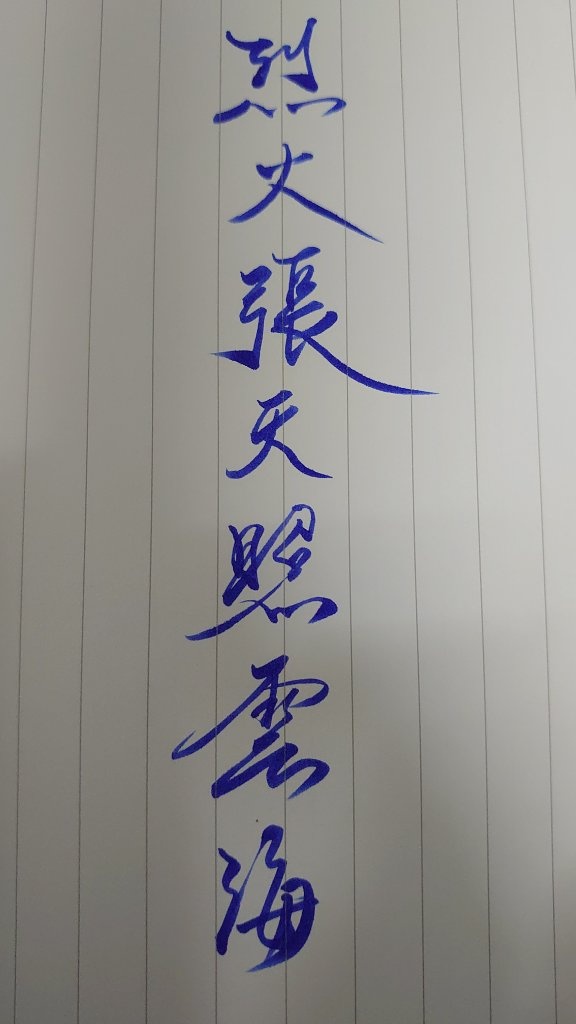 烈火張天照雲海